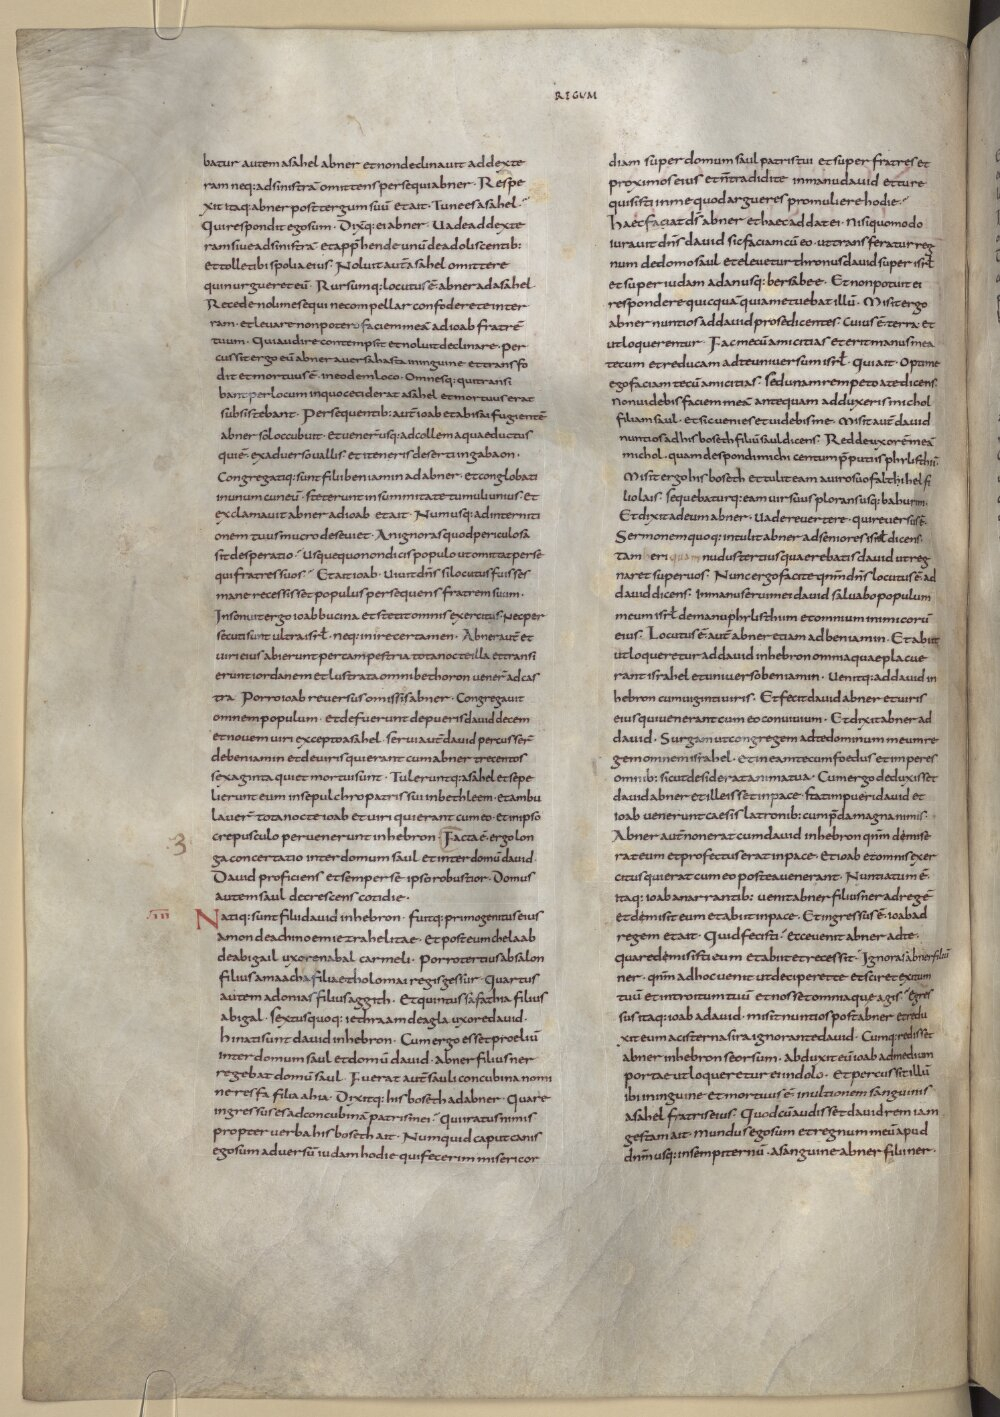 REGUM
batur autem asahel abner et non declinavit ad dexte
ram neq: ad sinistrā omittens persequi abner · Respe
xit itaq: abner post tergum suū et ait · Tu ne es asahel ·
Qui respondit ego sum · Dixq: ei abner · Vade ad dexte
ram sive ad sinistrā et app̄hende unū de adoliscentib:
et tolle tibi spolia eius · Noluit aut̄ asahel omittere
quin urgueret eū · Rursumq: locutus ē abner ad asahel ·
Recede noli me sequi ne compellar confodere te in ter
ram · et levare non potero faciem meā ad ioab fratrē
tuum · Qui audire contempsit et noluit declinare · per
cussit ergo eū abner aversa hasta in inguine · et transfo
dit et mortuus ē · in eodem loco · Omnesq: qui transi
bant per locum in quo ceciderat asahel et mortuus erat
subsistebant · Persequentib: aut̄ ioab et abisai fugientē
abner sol occubuit · et venerᵗ usq: ad collem aquaeductus
qui ē · ex adverso vallis · et iteneris deserti in gabaon ·
Congregatiq: sunt filii beniamin ad abner · et conglobati
in unum cuneū · steterunt in summitate tumuli unius · et
exclamavit abner ad ioab et ait · Num usq: ad interniti
onem tuus mucro desaeviet · An ignoras quod periculosa
sit desperatio · Usquequo non dicis populo ut omittat perse
qui fratres suos · Et ait ioab · Vivit dn̄s si locutus fuisses
mane recessisset populus persequens fratrem suum ·
Insonuit ergo ioab bucina et stetit omnis exercitus · Nec per
secuti sunt ultra isrl̄ · neq: inire certamen · Abner aut̄ et
viri eius abierunt per campestria tota nocte illa et transi
erunt iordanem et lustrata omni bethoron venerᵗ ad cas
tra · Porro ioab reversus omissis abner · Congregavit
omnem populum · et defuerunt de pueris david decem
et novem viri excepto asahel · servi aut̄ david percusserᵗ
de beniamin et de viris qui erant cum abner trecentos
sexaginta qui et mortui sunt · Tuleruntq: asahel et sepe
lierunt eum in sepulchro patris sui in bethleem · et ambu
laverᵗ tota nocte ioab et viri qui erant cum eo · et in ipso
crepusculo pervenerunt in hebron · Facta ē · ergo lon
3
ga concertatio inter domum saul et inter domū david ·
David proficiens et semper se ipso robustior · Domus
autem saul decrescens cotidie ·
III
Natiq: sunt filii david in hebron · fuitq: primogenitus eius
amon de achinoem iezrahelitae · Et post eum chelaab
de abigail uxore nabal carmeli · Porro tertius absalon
filius amaacha filiae tholomai regis gessur · Quartus
autem adonias filius aggith · Et quintus safathia filius
abigal · sextus quoq: iethraam de agla uxore david ·
hi nati sunt david in hebron · Cum ergo esset proeliū
inter domum saul et domū david · abner filius ner
regebat domū saul · Fuerat aut̄ sauli concubina nomi
ne resfa filia ahia · Dixitq: hisboseth ad abner · Quare
ingressus es ad concubinā patris mei · Qui iratus nimis
propter verba hisboseth ait · Numquid caput canis
ego sum adversū iudam hodie qui fecerim misericor
diam super domum saul patris tui et super fratres et
proximos eius et n̄ tradidi te in manu david et tu re
quisisti in me quod argueres pro muliere hodie ·
haec faciat ds̄ abner et haec addat ei · nisi quomodo
iuravit dn̄s david sic faciam cū eo · ut transferatur reg
num de domo saul et elevetur thronus david super isrl̄
et super iudam a dan usq: bersabee · Et non potuit ei
respondere quicquā quia metuebat illū · Misit ergo
abner nuntios ad david pro se dicentes · Cuius ē terra et
ut loquerentur · Fac mecū amicitias et erit manus mea
tecum et reducam ad te universum isrl̄ · Qui ait · Optime
ego faciam tecū amicitias · sed unam rem peto a te dicens ·
non videbis faciem meā antequam adduxeris michol
filiam saul · et sic venies et videbis me · Misit aut̄ david
nuntios ad hisboseth filiū saul dicens · Redde uxorē meā
michol · quam despondi michi centum p̄putiis phylisthiī
Misit ergo hisboseth et tulit eam a viro suo falthihel fi
lio lais · sequebaturq: eam vir suus plorans usq: bahurim ·
Et dixit ad eum abner · Vade revertere · qui reversus ē ·
Sermonem quoq: intulit abner ad seniores isrl̄ dicens
tam heri quam nudus tertius quaerebatis david ut reg
naret super vos · Nunc ergo facite qm̄ dn̄s locutus ē ad
david dicens · In manu servi mei david salvabo populum
meum isrl̄ de manu phylisthum et omnium inimicorū
eius · Locutus ē aut̄ abner etiam ad beniamin · Et abiit
ut loqueretur ad david in hebron omnia quae placue
rant israhel et universo beniamin · Venitq: ad david in
hebron cum viginti viris · Et fecit david abner et viris
eius qui venerant cum eo convivium · Et dixit abner ad
david · Surgam ut congregem ad te dominum meum re
gem omnem israhel · et ineam tecum foedus et imperes
omnib: sicut desiderat anima tua · Cum ergo deduxisset
david abner et ille isset in pace · statim pueri david et
ioab venerunt caesis latronib: cum p̄da magna nimis ·
Abner aut̄ non erat cum david in hebron qm̄ dimise
rat eum et profectus erat in pace · Et ioab et omnis exer
citus qui erat cum eo postea venerant · Nuntiatum ē ·
itaq: ioab a narrantib: venit abner filius ner ad regē
et demisit eum et abiit in pace · Et ingressus ē · ioab ad
regem et ait · Quid fecisti · Ecce venit abner ad te ·
quare demisisti eum et abiit et recessit · Ignoras abner filiū
ner · qm̄ ad hoc venit ut deciperet te et sciret exitum
tuū et introitum tuū et nosset omnia que agis · Egres
sus itaq: ioab a david · misit nuntios post abner et redu
xit eum a cisterna sira ignorante david · Cumq: redisset
abner in hebron seorsum · abduxit eū ioab ad medium
portae ut loqueretur ei in dolo · Et percussit illū
ibi in inguine et mortuus ē in ultionem sanguinis
asahel fratris eius · Quod cū audisset david rem iam
gestam ait · mundus ego sum et regnum meū apud
dn̄m usq: in sempiternū · a sanguine abner filii ner ·